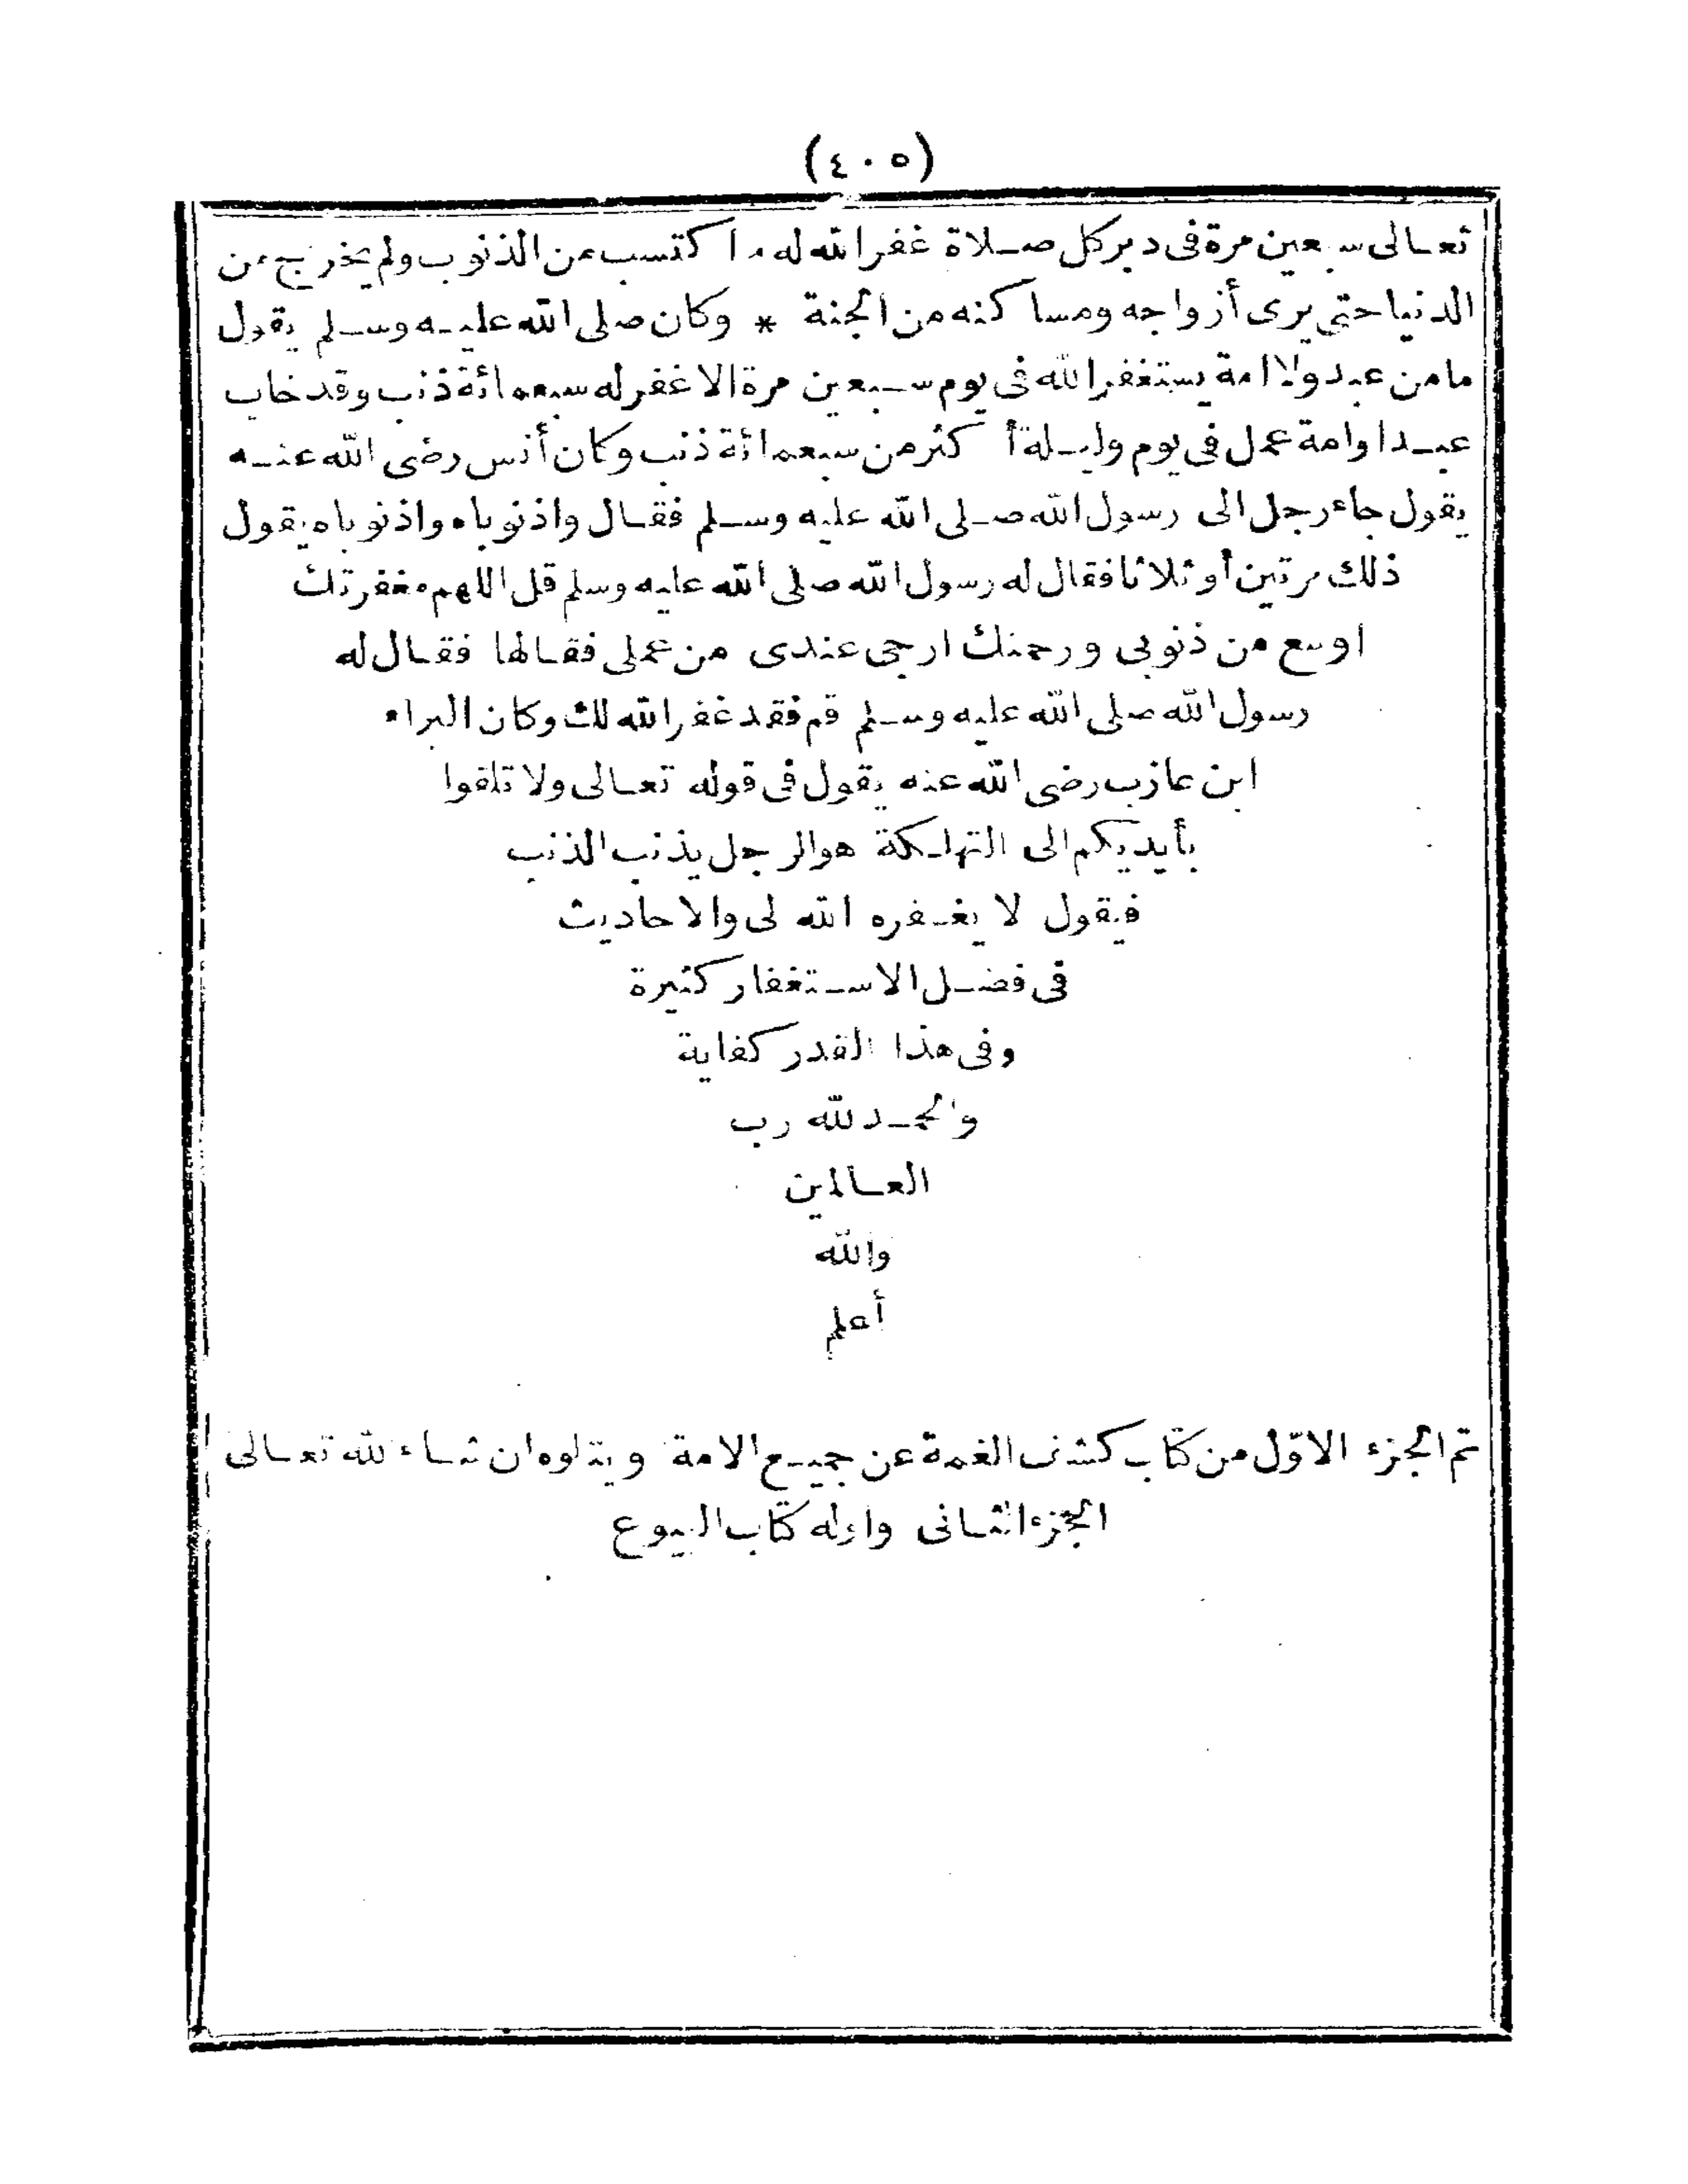 (٤٠٥)
تعالى سبعين مرة فى دبر كل صلاة غفر الله له ما اكتسب من الذنوب ولم يخرج من
الدنيا حتى يرى أزواجه ومساكنه من الجنة * وكان صلى الله عليه وسلم يقول
ما من عبد ولا امة يستغفر الله فى يوم سبعين مرة الا غفر له سبعمائة ذنب وقد خاب
عبد او امة عمل فى يوم وليلة أكثر من سبعمائة ذنب وكان أنس رضى الله عنه
يقول جاء رجل الى رسول الله صلى الله عليه وسلم فقال واذنوباه واذنوباه يقول
ذلك مرتين أو ثلاثا فقال له رسول الله صلى الله عليه وسلم قل اللهم مغفرتك
اوسع من ذنوبى ورحمتك ارجى عندى من عملى فقالها فقال له
رسول الله صلى الله عليه وسلم قم فقد غفر الله لك وكان البراء
ابن عازب رضى الله عنه يقول فى قوله تعالى ولا تلقوا
بأيديكم الى التهلكة هو الرجل يذنب الذنب
فيقول لا يغفره الله لى والاحاديث
فى فضل الاستغفار كثيرة
وفى هذا القدر كفاية
والحمد لله رب
العالمين
والله
أعلم
تم الجزء الاوّل من كتاب كشف الغمة عن جميع الامة ويتلوه ان شاء الله تعالى
الجزء الثانى واوله كتاب البيوع